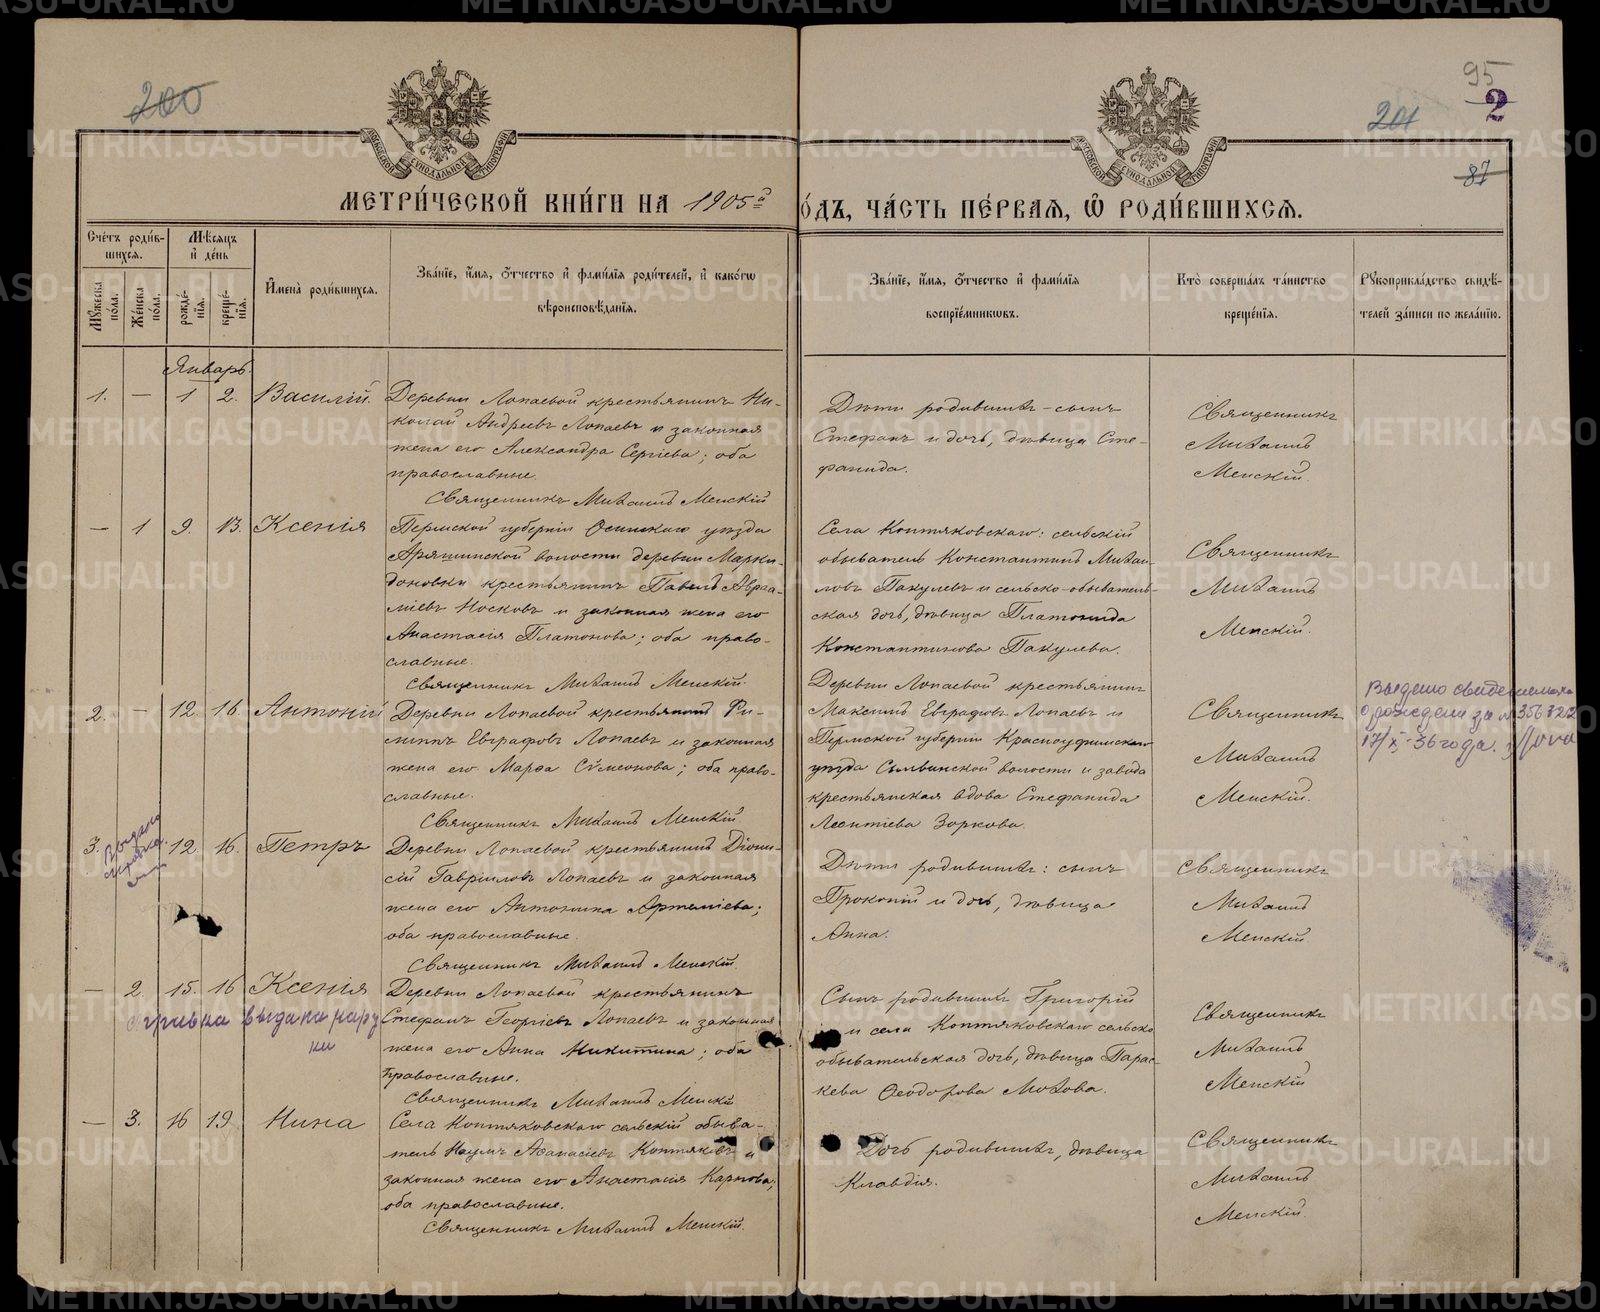 METRIKI.GASO-URAL.RU
200
95
201
2
87
МЕТРИЧЕСКОЙ КНИГИ НА 1905й ГОДЪ, ЧАСТЬ ПЕРВАЯ, Ѡ РОДИВШИХСЯ.
Счетъ родившихся.
Мужеска пола.
Женска пола.
Мѣсяцъ и день
рожденія.
крещенія.
Имена родившихся.
Званіе, имя, отчество и фамилія родителей, и какого
вѣроисповѣданія.
Званіе, имя, отчество и фамилія
воспріемниковъ.
Кто совершалъ таинство
крещенія.
Рукоприкладство свидѣ-
телей записи по желанію.
Январь.
1. — 1 2. Василій.
Деревни Лопаевой крестьянинъ Ни-
колай Андреевъ Лопаевъ и законная
жена его Александра Сергіева; оба
православные.
Священникъ Михаилъ Менскій
Дѣти родившихъ - сынъ
Стефанъ и дочь, дѣвица Сте-
фанида.
Священникъ
Михаилъ
Менскій.
— 1 9. 13. Ксенія
Пермской губерніи Осинскаго уѣзда
Аряшинской волости деревни Марки-
доновки крестьянинъ Павелъ Авраа-
міевъ Носковъ и законная жена его
Анастасія Платонова; оба право-
славные.
Священникъ Михаилъ Менскій.
Села Коптяковскаго: сельскій
обыватель Константинъ Михаи-
ловъ Пакулевъ и сельско-обыватель-
ская дочь, дѣвица Платонида
Константинова Пакулева.
Священникъ
Михаилъ
Менскій.
2. — 12. 16. Антоній
Деревни Лопаевой крестьянинъ Фи-
липпъ Евграфовъ Лопаевъ и законная
жена его Марѳа Сѵмеонова; оба право-
славные.
Священникъ Михаилъ Менскій
Деревни Лопаевой крестьянинъ
Максимъ Евграфовъ Лопаевъ и
Пермской губерніи Красноуфимскаго
уѣзда Сылвинской волости и завода
крестьянская вдова Стефанида
Леонтіева Зоркова.
Священникъ
Михаилъ
Менскій.
Выдано свидетельство
о рождении за № 356722
17/X - 36 года.
3. 12. 16. Петръ
Выдана
справка
Деревни Лопаевой крестьянинъ Діони-
сій Гавріиловъ Лопаевъ и законная
жена его Антонина Артеміева;
оба православные.
Священникъ Михаилъ Менскій.
Дѣти родившихъ: сынъ
Прокопій и дочь, дѣвица
Анна.
Священникъ
Михаилъ
Менскій
— 2. 15. 16 Ксенія
справка выдана на ру
ки
Деревни Лопаевой крестьянинъ
Стефанъ Георгіевъ Лопаевъ и законная
жена его Анна Никитина; оба
православные.
Священникъ Михаилъ Менскій
Сынъ родившихъ Григорій
и села Коптяковскаго сельско-
обывательская дочь, дѣвица Парас-
кева Ѳеодорова Мохова.
Священникъ
Михаилъ
Менскій
— 3. 16 19. Нина
Села Коптяковскаго сельскій обыва-
тель Наумъ Аѳанасіевъ Коптяковъ и
законная жена его Анастасія Карпова;
оба православные.
Священникъ Михаилъ Менскій.
Дочь родившихъ, дѣвица
Клавдія.
Священникъ
Михаилъ
Менскій.